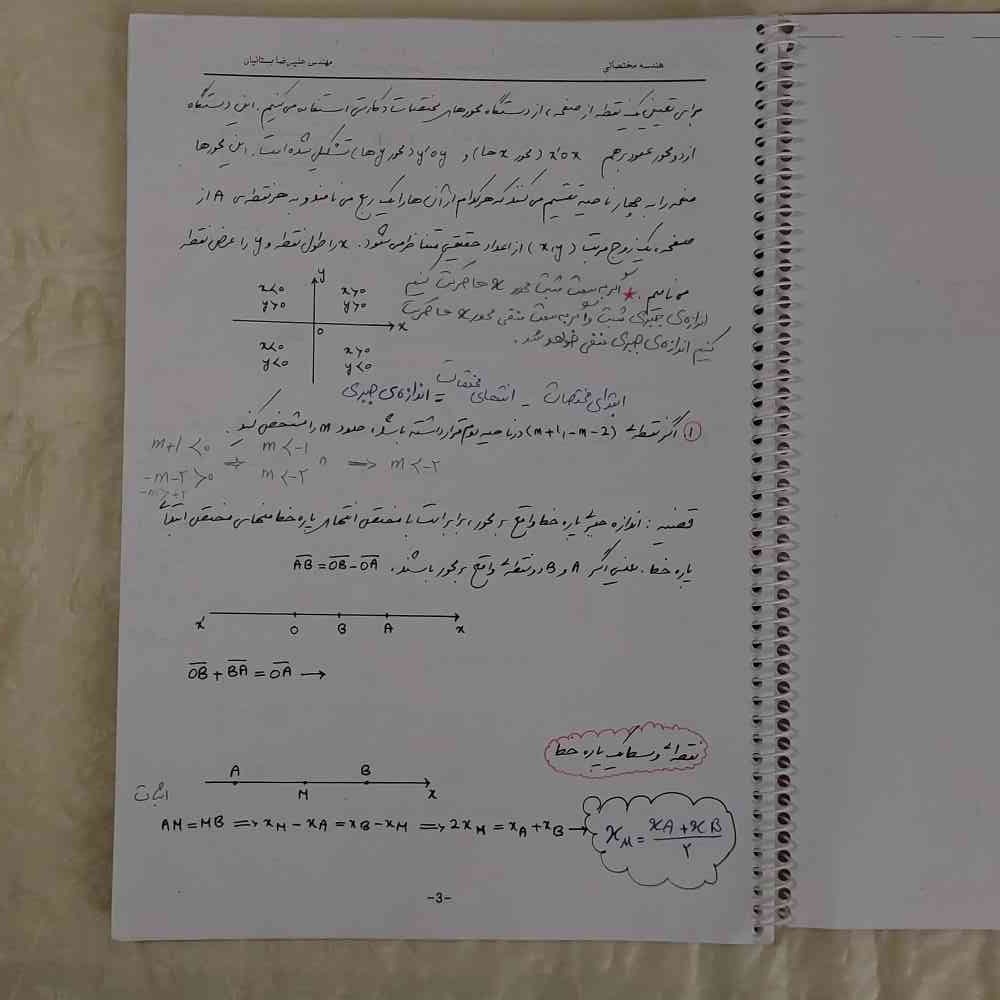 هندسه مختصاتی
مهندس علیرضا بستانیان
برای تعیین یک نقطه از صفحه، از دستگاه محورهای مختصات دکارتی استفاده می‌کنیم. این دستگاه
از دو محور عمود برهم x'ox (محور xها) و y'oy (محور yها) تشکیل شده است. این محورها
صفحه را به چهار ناحیه تقسیم می‌کنند که هر کدام از آن‌ها را یک ربع می‌نامند و به هر نقطه‌ی A از
صفحه، یک زوج مرتب (x,y) از اعداد حقیقی متناظر می‌شود. x را طول نقطه و y را عرض نقطه
می‌نامیم. * اگر به سمت مثبت محور x ها حرکت کنیم
اندازه‌ی جبری مثبت و اگر به سمت منفی محور x ها حرکت
کنیم اندازه‌ی جبری منفی خواهد شد.
y
x<0 x>0
y>0 y>0
o x
x<0 x>0
y<0 y<0
ابتدای مختصات - انتهای مختصات = اندازه‌ی جبری
① اگر نقطهٔ (m+1, -m-2) در ناحیه دوم قرار داشته باشد، حدود m را مشخص کنید.
m+1<0 ⇒ m<-1
-m-2>0 m<-2 ∩ ⟹ m<-2
-m>+2
قضیه: اندازه جبری پاره خط واقع بر محور، برابر است با مختص انتهای پاره خط منهای مختص ابتدای
پاره خط. یعنی اگر A و B دو نقطهٔ واقع بر محور باشند. A̅B̅=O̅B̅-O̅A̅
x' O B A x
O̅B̅+B̅A̅=O̅A̅ →
نقطهٔ وسط یک پاره خط
A M B x
اثبات
AM=MB ⟹ x_M-x_A=x_B-x_M ⟹ 2x_M=x_A+x_B → x_M=(x_A+x_B)/۲
-3-